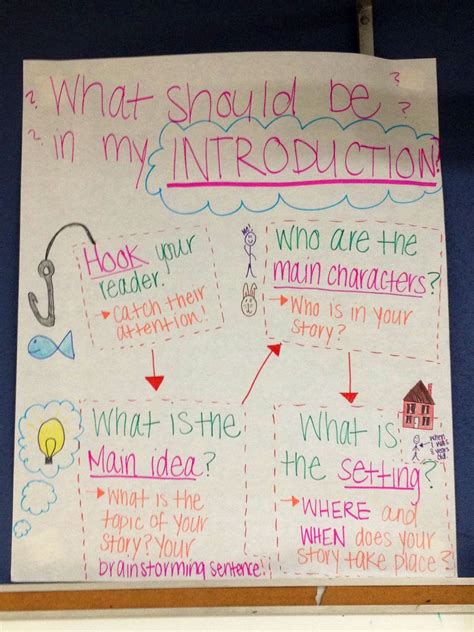 ? What should be ?
? in my INTRODUCTION? ?
Hook your
reader.
→ Catch their
attention!
What is the
Main idea?
→ What is the
topic of your
story? Your
brainstorming sentence!
Me!
Who are the
main characters?
→ Who is in your
story?
What is
the setting?
→ WHERE and
WHEN does your
story take place?
when
I was
5 years
old.